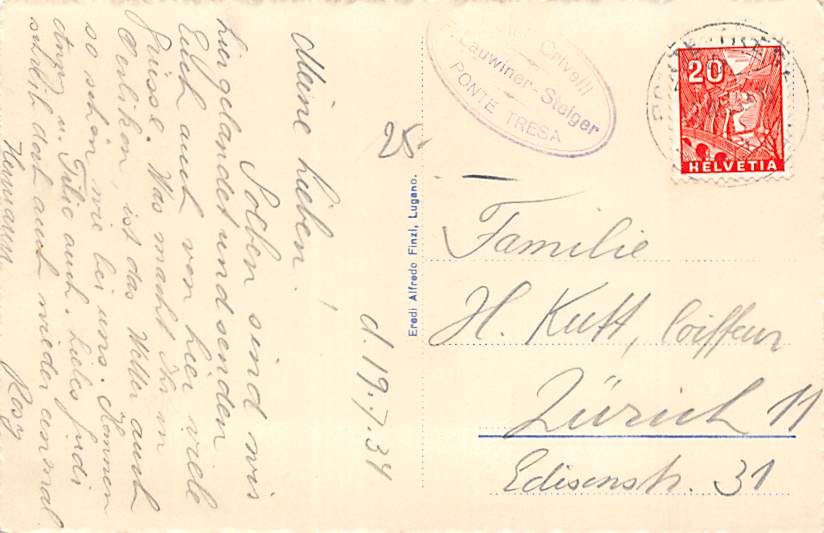 d. 19.7.34
Meine Lieben!
Soeben sind wir
hier gelandet und senden
Euch auch von hier viele
Grüsse. Was macht Ihr in
Oerlikon, ist das Wetter auch
so schön wie bei uns. Kommen
u. auch. Liebes
dort auch wieder einmal
Hermann Rosy
25.-
Hotel Crivelli
F. Lauwiner-Steiger
PONTE TRESA
20
HELVETIA
Eredi Alfredo Finzi, Lugano.
Familie
H. Kutt, Coiffeur
Zürich 11
Edisonstr. 31